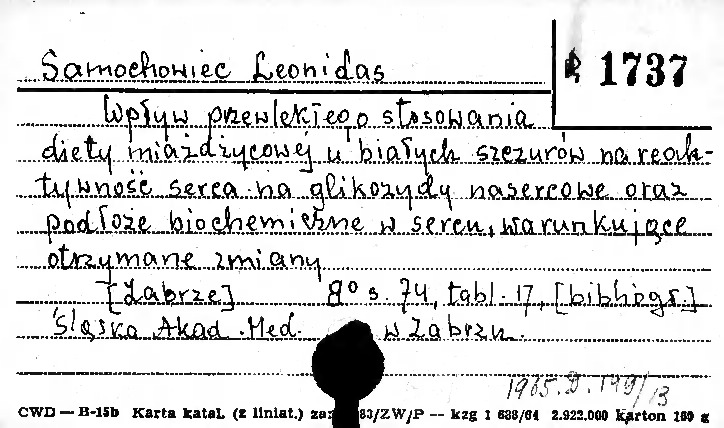 Samochowiec Leonidas
R 1737
Wpływ przewlekłego stosowania
diety miażdżycowej u białych szczurów na reak-
tywność serca na glikozydy nasercowe oraz
podłoże biochemiczne w sercu, warunkujące
otrzymane zmiany
[Zabrze] 8° s. 74, tabl. 17, [bibliogr.]
Śląska Akad. Med. w Zabrzu.
1965.D.149/13
CWD — B-15b Karta katal. (z liniat.) 83/ZW/P — kzg 1 638/64 2.922.000 karton 160 g